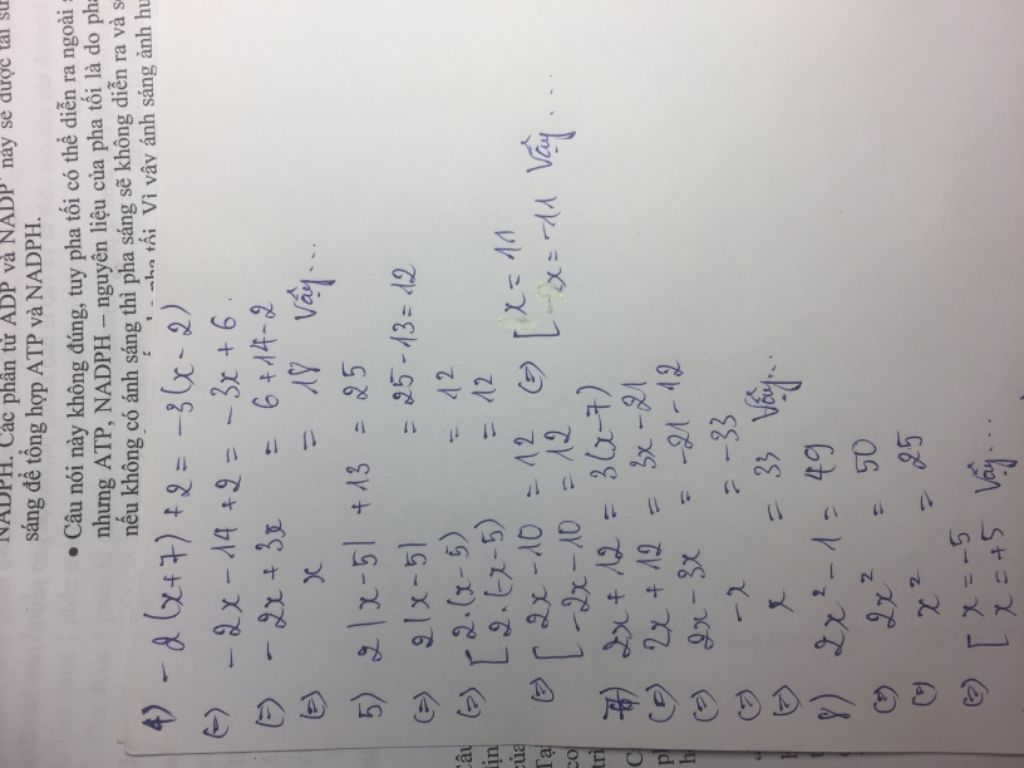 NADPH. Các phân tử ADP và NADP⁺ này sẽ được tái sử
sáng để tổng hợp ATP và NADPH.
• Câu nói này không đúng, tuy pha tối có thể diễn ra ngoài
nhưng ATP, NADPH – nguyên liệu của pha tối là do pha
nếu không có ánh sáng thì pha sáng sẽ không diễn ra và
pha tối. Vì vậy ánh sáng ảnh
4) -2(x+7)+2 = -3(x-2)
(=) -2x-14+2 = -3x+6.
(=) -2x+3x = 6+14-2
(=) x = 18 Vậy...
5) 2|x-5| +13 = 25
(=) 2|x-5| = 25-13 = 12
(=) [ 2.(x-5) = 12
[ 2.(-x-5) = 12
(=) [ 2x-10 = 12 (=) [ x = 11
[ -2x-10 = 12 [ x = -11 Vậy...
7) 2x+12 = 3(x-7)
(=) 2x+12 = 3x-21
(=) 2x-3x = -21-12
(=) -x = -33
(=) x = 33 Vậy...
8) 2x²-1 = 49
(=) 2x² = 50
(=) x² = 25
(=) [ x = -5
[ x = +5 Vậy...